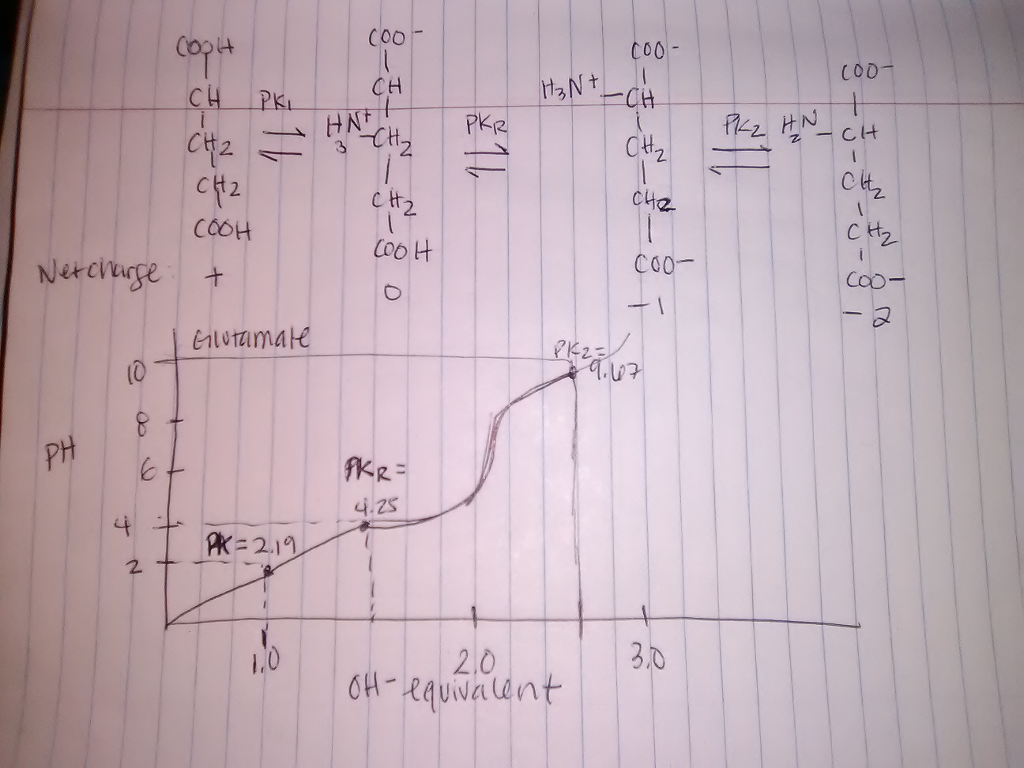 COOH
CH
CH2
CH2
COOH
PK1
COO-
CH
H3N+-CH2
CH2
COOH
PKR
COO-
H3N+-CH
CH2
CH2
COO-
PK2
COO-
H2N-CH
CH2
CH2
COO-
Net charge: + 0 -1 -2
Glutamate
PK2=
9.67
10
8
PH
6
PKR=
4.25
4
PK=2.19
2
1.0 2.0 3.0
OH- equivalent